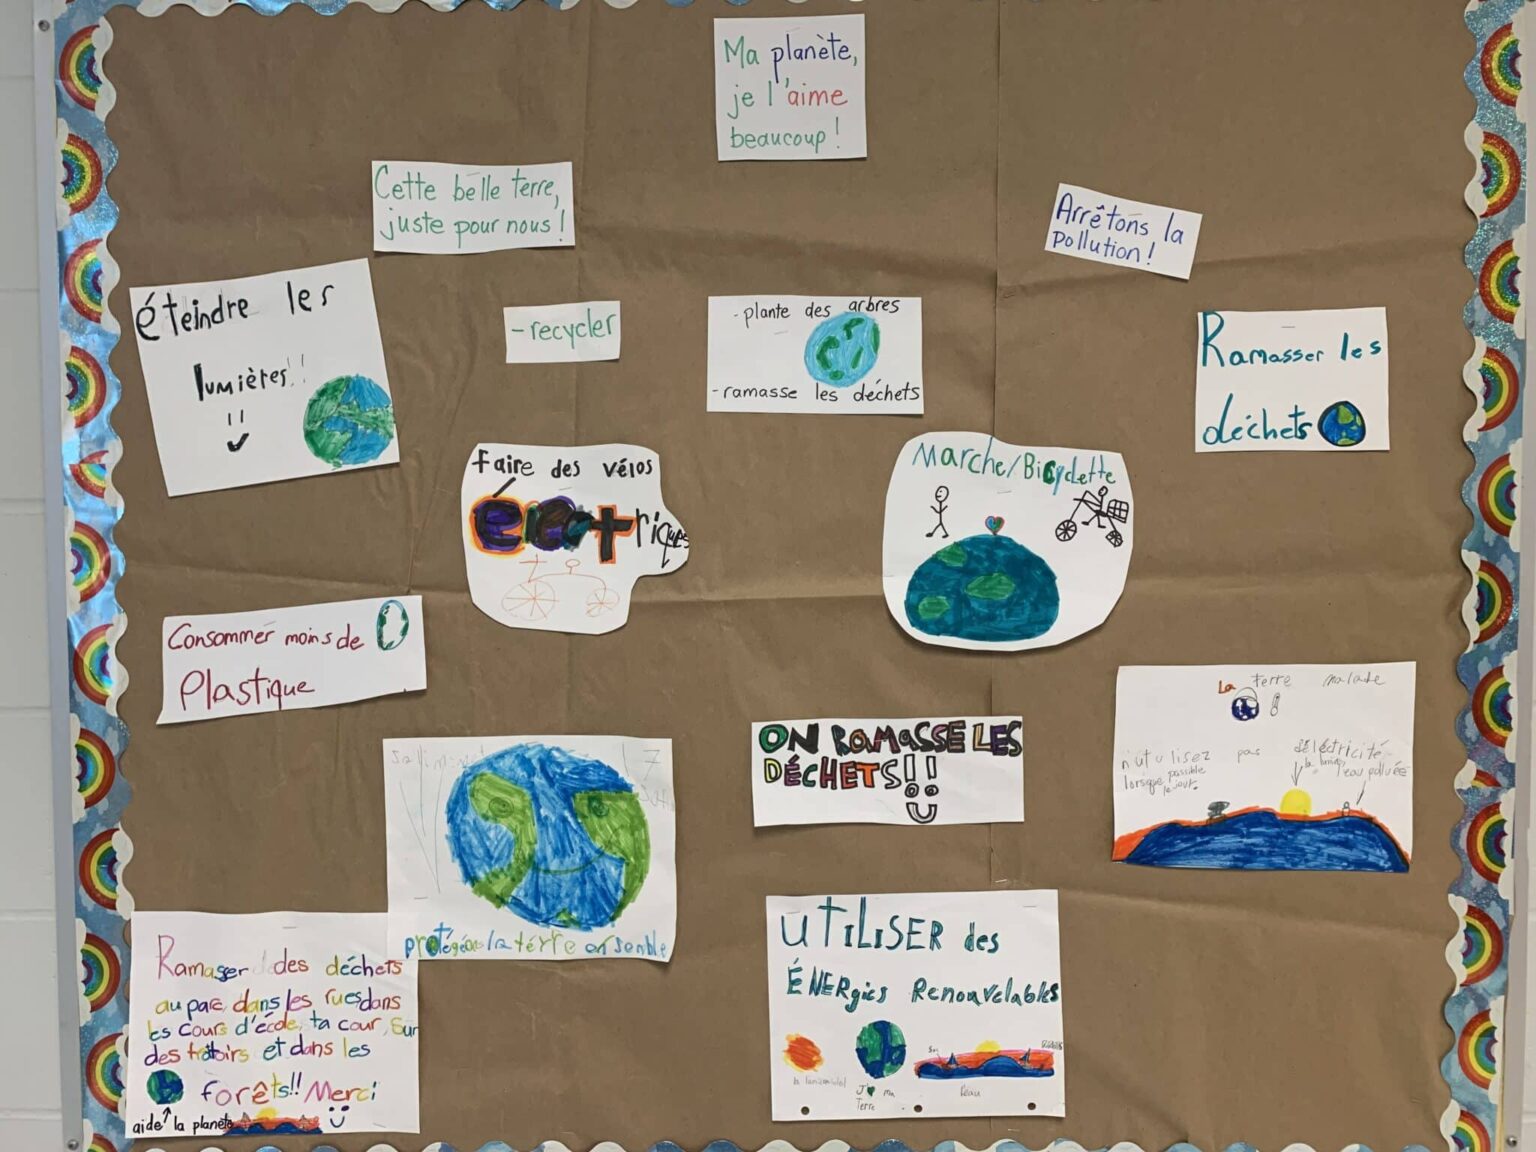 Ma planète,
je l'aime
beaucoup!
Cette belle terre,
juste pour nous!
Arrêtons la
pollution!
éteindre les
lumières!!
-recycler
-plante des arbres
-ramasse les déchets
Ramasser les
déchets
faire des vélos
électriques
Marche/Bicyclette
Consommer moins de
Plastique
ON RAMASSE LES
DÉCHETS!!
La terre malade
n'utulisez pas d'électricité
lorsque possible
le jour.
l'eau polluée
protégeons la terre ensemble
Ramasser des déchets
au parc, dans les rues dans
les cours d'école, ta cour, sur
des trotoirs et dans les
forêts!! Merci
aide la planète
UTILISER des
ÉNERgies Renouvelables
J' ma
Terre
l'eau